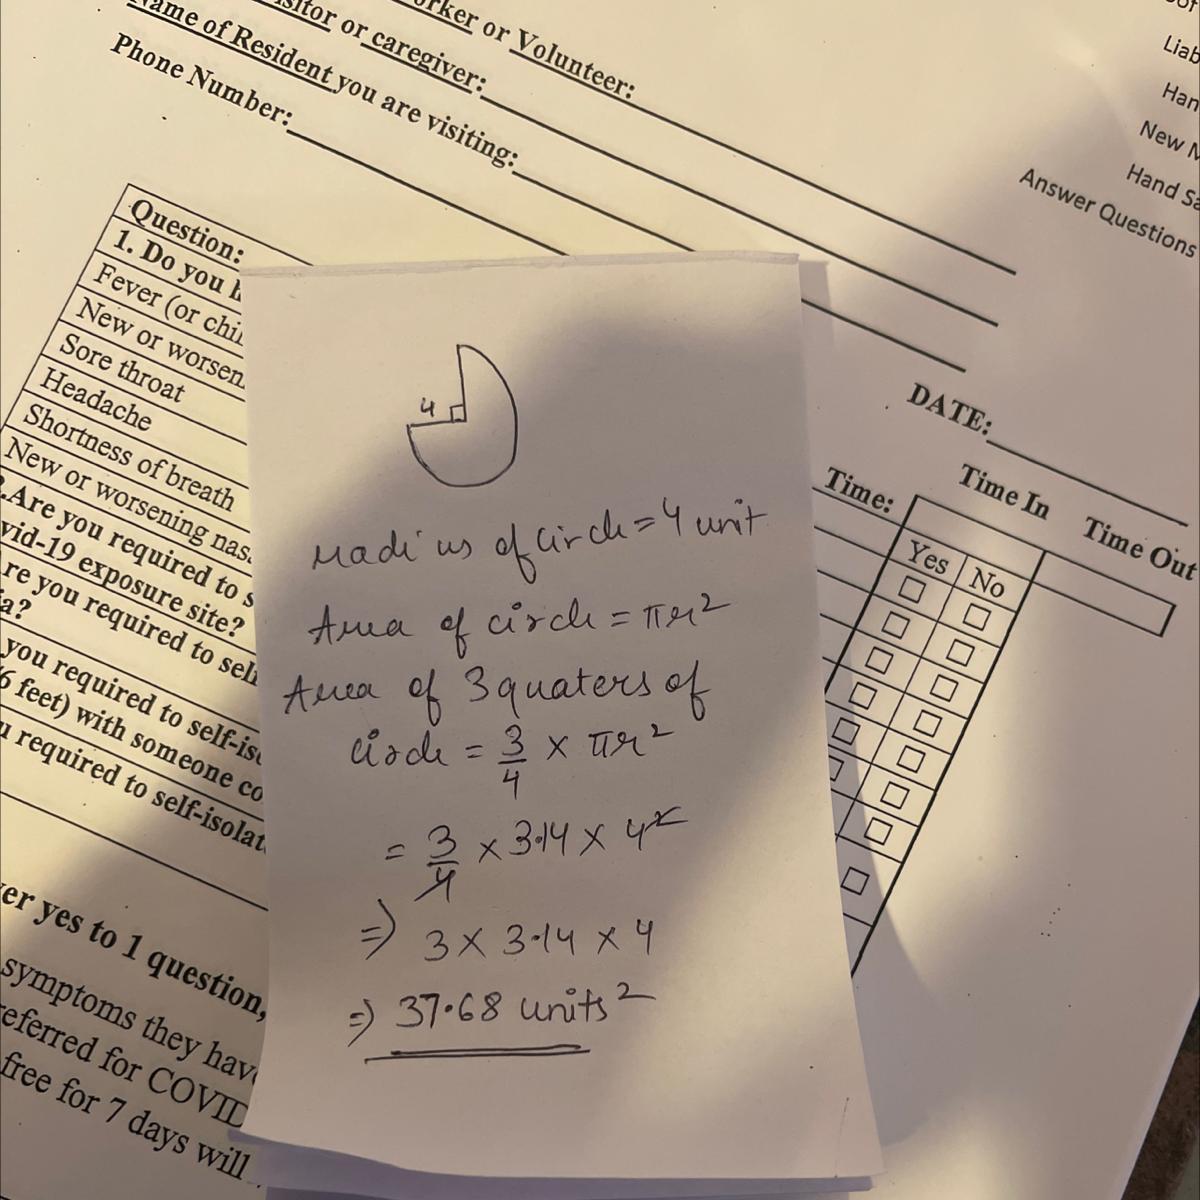 orker or Volunteer:
isitor or caregiver:
Name of Resident you are visiting:
Phone Number:
Liab
Han
New M
Hand Sa
Answer Questions
DATE:
Time In
Time Out
Time:
Yes No
Question:
1. Do you h
Fever (or chil
New or worsen
Sore throat
Headache
Shortness of breath
New or worsening nas
2.Are you required to s
vid-19 exposure site?
re you required to self
ia?
you required to self-iso
(6 feet) with someone co
u required to self-isolat
er yes to 1 question,
symptoms they have
referred for COVID
free for 7 days will
4
Radius of circle = 4 unit
Area of circle = πr²
Area of 3 quaters of
circle = 3/4 × πr²
= 3/4 × 3.14 × 4²
⇒ 3 × 3.14 × 4
⇒ 37.68 units²